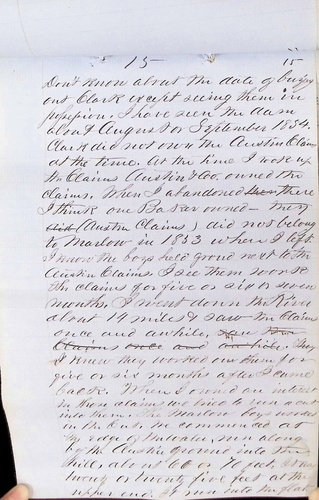 15
15
Don't know about the date of buying
out Clark except seeing them in
possession. I have seen the dam
about August or September 1854.
Clark did not own the Austin Claims
at the time. At the time I
the Claims Austin & Co. owned the
claims. When I abandoned there
I think one Baker owned they
(Austin Claims) did not belong
to Marlow in 1853 when I left
I know the boys held ground next to the
Austin Claims I see them work
the claims for five or six or seven
months. I went down the River
about 14 miles & saw the Claims
once and awhile,
Claims once and awhile. They
I knew they worked on them for
five or six months after I came
back. When I owned an interest
in those claims we had to run a cut
into them. The Marlow boys worked
in the Cut. We commenced at
the edge of run along
by the Austin ground into the
hill, about 60 or 70 feet. It was
twenty or twenty five feet at the
upper end.